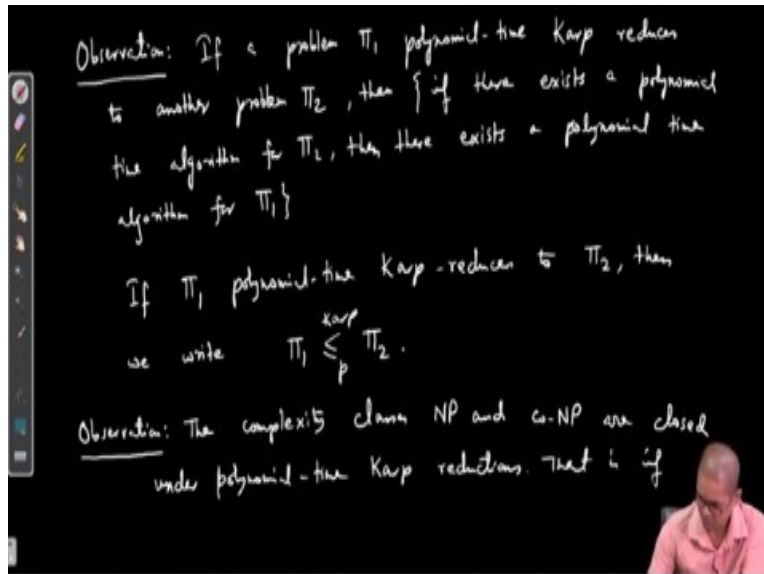 Observation: If a problem Π₁ polynomial-time Karp reduces
to another problem Π₂, then { if there exists a polynomial
time algorithm for Π₂, then there exists a polynomial time
algorithm for Π₁}
If Π₁ polynomial-time Karp-reduces to Π₂, then
we write Π₁ ≤ₚᵏᵃʳᵖ Π₂.
Observation: The complexity classes NP and co-NP are closed
under polynomial-time Karp reductions. That is if